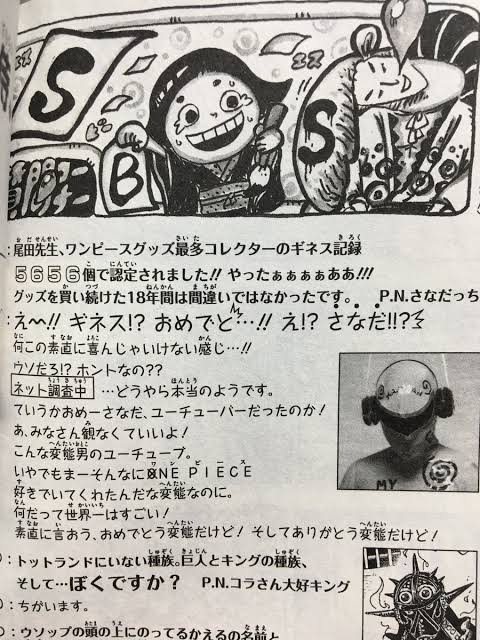 S
B
S
:尾田先生、ワンピースグッズ最多コレクターのギネス記録
5656個で認定されました!! やったぁぁぁぁああ!!!
グッズを買い続けた18年間は間違いではなかったです。 P.N.さなだっち
:え〜!! ギネス!? おめでと…!! え!? さなだ!!?
何この素直に喜んじゃいけない感じ…!!
ウソだろ!? ホントなの??
ネット調査中 …どうやら本当のようです。
ていうかおめーさなだ、ユーチューバーだったのか!
あ、みなさん観なくていいよ!
こんな変態男のユーチューブ。
いやでもまーそんなにONE PIECE
好きでいてくれたんだな変態なのに。
何だって世界一はすごい!
素直に言おう、おめでとう変態だけど! そしてありがとう変態だけど!
MY
:トットランドにいない種族。巨人とキングの種族、
そして…ぼくですか? P.N.コラさん大好キング
:ちがいます。
:ウソップの頭の上にのってるかえるの名前と